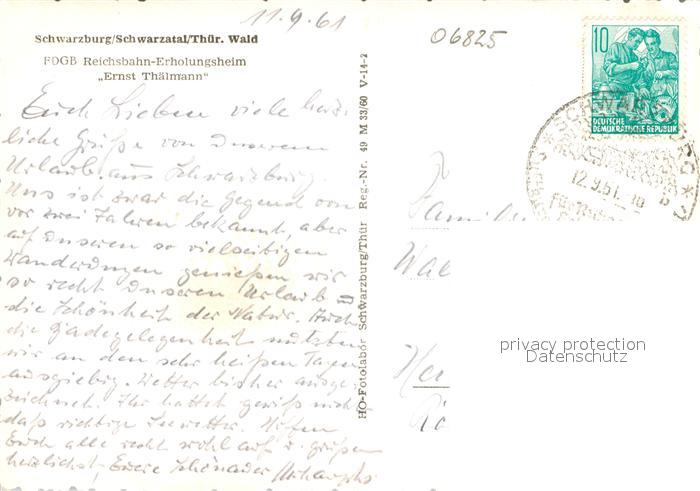 11.9.61
06825
Schwarzburg/Schwarzatal/Thür. Wald
FDGB Reichsbahn-Erholungsheim
„Ernst Thälmann"
Euch Lieben viele herz-
liche Grüße von unserem
Urlaub aus Schwarzburg.
Uns ist zwar die Gegend von
vor zwei Jahren bekannt, aber
auf unseren so vielseitigen
Wanderungen genießen wir
so recht unseren Urlaub und
die Schönheit der Natur. Auch
die Badegelegenheit nutzten
wir an den sehr heißen Tagen
ausgiebig. Wetter bisher ausge-
zeichnet. Ihr hattet gewiß nicht
das richtige Seewetter. Hoffen
Euch alle recht wohl auf u. grüßen
herzlichst Eure
HO-Fotolabor Schwarzburg/Thür Reg.-Nr. 49 M 33/60 V-14-2
10
DEUTSCHE
DEMOKRATISCHE REPUBLIK
SCHWARZBURG
12.9.61
Familie
privacy protection
Datenschutz